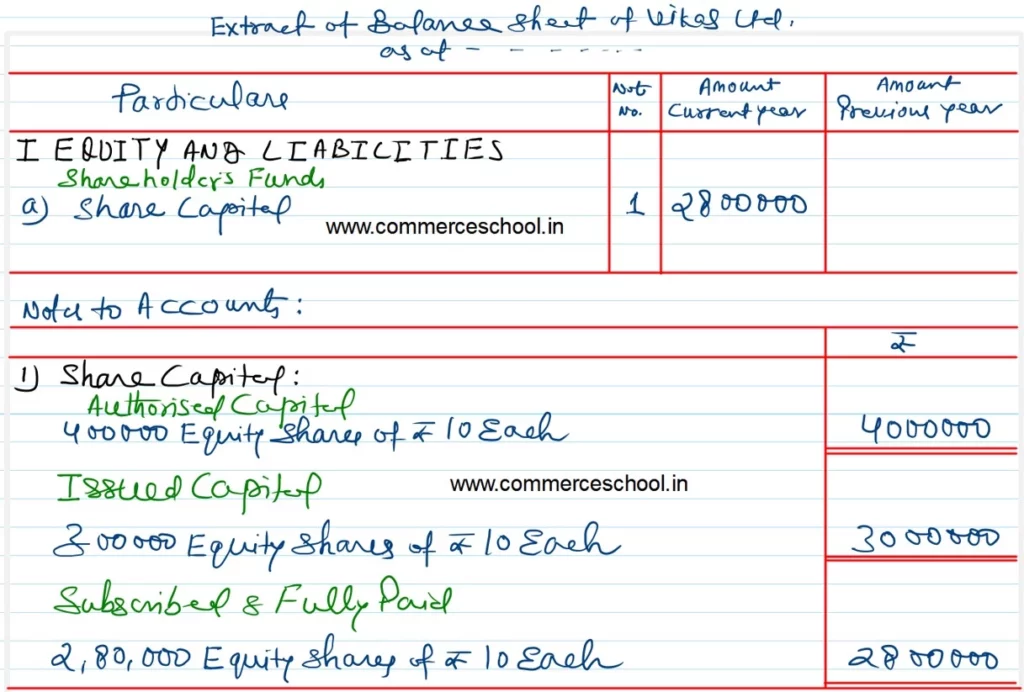 Extract of Balance Sheet of Vikas Ltd.
as at - - - - - - - -
Particulars Note No. Amount Current year Amount Previous year
I EQUITY AND LIABILITIES
Shareholder's Funds
a) Share Capital 1 2800000
www.commerceschool.in
Notes to Accounts:
₹
1) Share Capital:
Authorised Capital
400000 Equity Shares of ₹ 10 Each 4000000
Issued Capital www.commerceschool.in
300000 Equity Shares of ₹ 10 Each 3000000
Subscribed & Fully Paid
2,80,000 Equity Shares of ₹ 10 Each 2800000